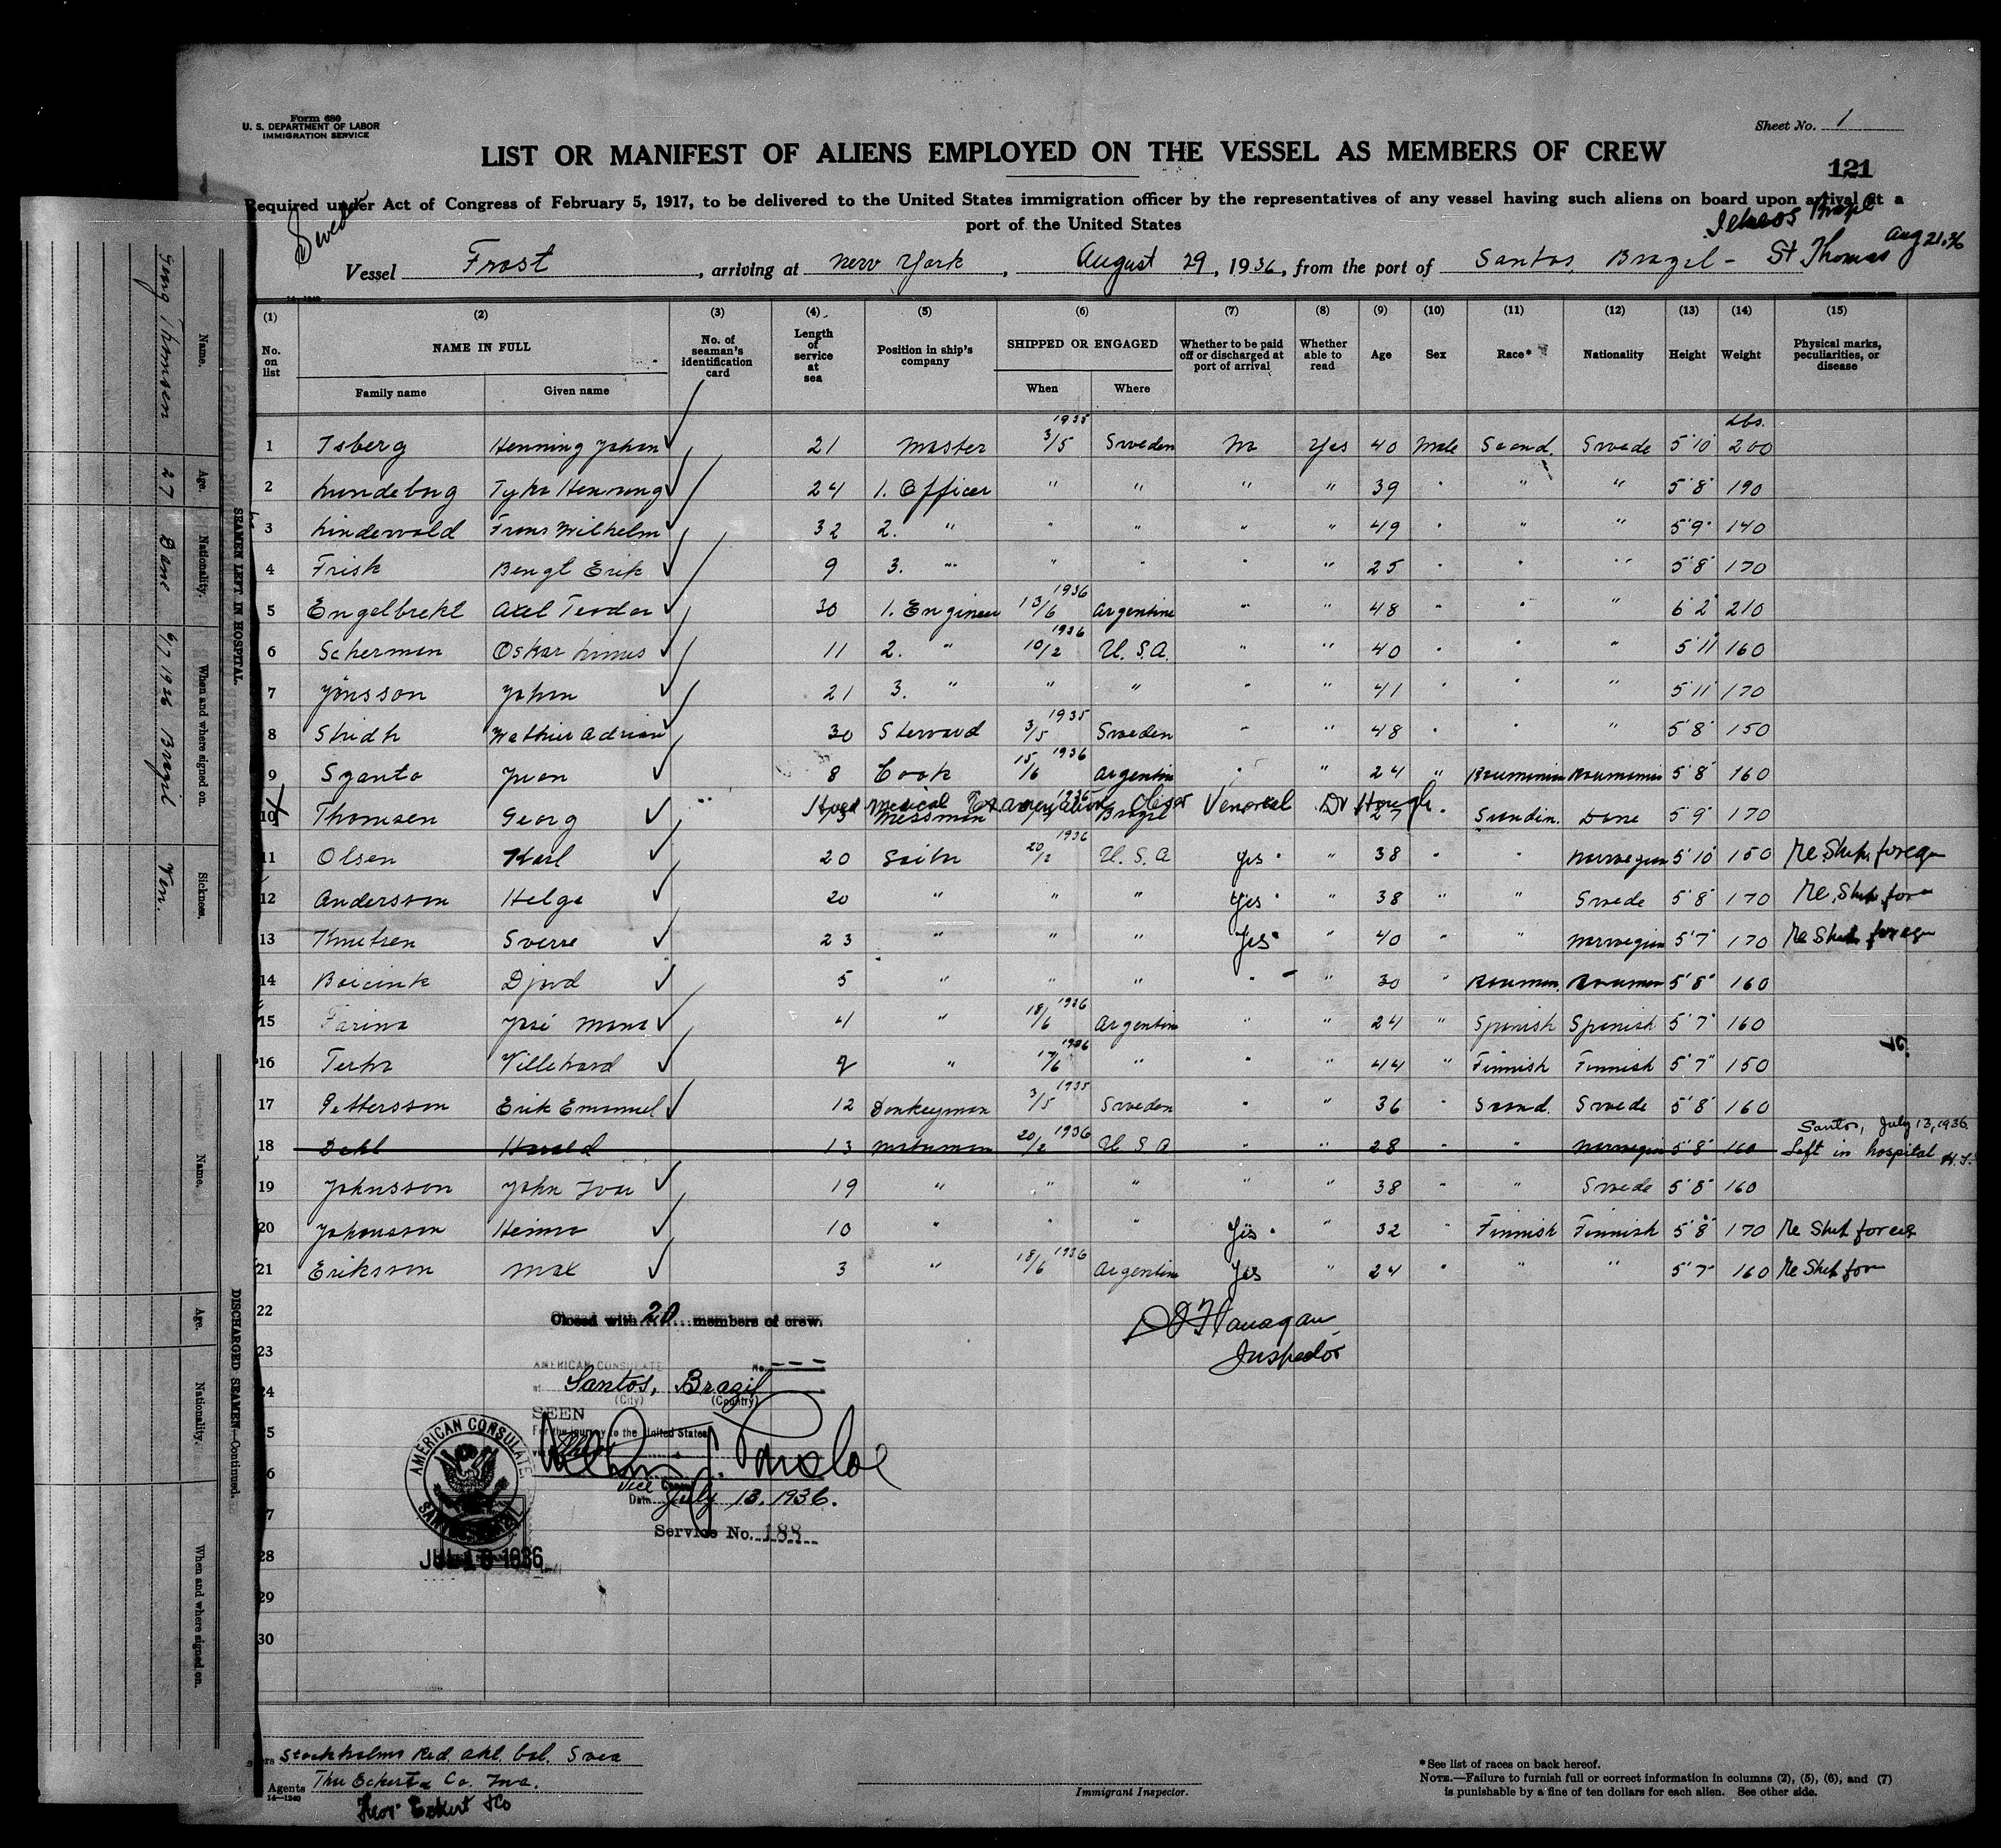 Form 680
U. S. DEPARTMENT OF LABOR
IMMIGRATION SERVICE
Sheet No. 1
LIST OR MANIFEST OF ALIENS EMPLOYED ON THE VESSEL AS MEMBERS OF CREW
121
Required under Act of Congress of February 5, 1917, to be delivered to the United States immigration officer by the representatives of any vessel having such aliens on board upon arrival at a
port of the United States
Brazil
Aug 21.36
Vessel Frost, arriving at New York, August 29, 1936, from the port of Santos, Brazil - St Thomas
14—1240
(1) (2) (3) (4) (5) (6) (7) (8) (9) (10) (11) (12) (13) (14) (15)
No. on list NAME IN FULL No. of seaman's identification card Length of service at sea Position in ship's company SHIPPED OR ENGAGED Whether to be paid off or discharged at port of arrival Whether able to read Age Sex Race* Nationality Height Weight Physical marks, peculiarities, or disease
Family name Given name When Where
1935 Lbs.
1 Isberg Henning Johan 21 Master 3/5 Sweden No Yes 40 Male Scand. Swede 5'10" 200
2 24 1. Officer " " " " 39 " " " 5'8" 190
3 Frans Wilhelm 32 2. " " " " " 49 " " " 5'9" 140
4 Frisk Bengt Erik 9 3. " " " " " 25 " " " 5'8" 170
5 Engelbrekt Axel Teodor 30 1. Engineer 13/6 1936 Argentine " " 48 " " " 6'2" 210
6 Scherman Oskar 11 2. " 10/2 1936 U.S.A. " " 40 " " " 5'11" 160
7 Jönsson Johan 21 3. " " " " " 41 " " " 5'11" 170
8 Adrian 30 Steward 3/5 1935 Sweden " " 48 " " " 5'8" 150
9 Szanto Juon 8 Cook 15/6 1936 Argentin " " 24 " 5'8" 160
Medical Examination Venereal Dr Hough
10 Thomsen Georg Messman Brazil 27 " Dane 5'9" 170
11 Olsen Karl 20 20/2 1936 U.S.A Yes " 38 " " Norwegian 5'10" 150 Re Ship foreign
12 Andersson Helge 20 " " " Yes " 38 " " Swede 5'8" 170 Re Ship for
13 Knutsen Sverre 23 " " " Yes " 40 " " Norwegian 5'7" 170 Re Ship foreign
14 5 " " " " " 30 " Roumen. Roumen 5'8" 160
15 Farina José 4 " 18/6 1936 Argentin " " 24 " Spanish Spanish 5'7" 160
16 " 1936 " " " 44 " Finnish Finnish 5'7" 150
17 Pettersson Erik Emanuel 12 Donkeyman 3/5 1935 Sweden " " 36 " Scand. Swede 5'8" 160
Santos, July 13, 1936.
18 Dahl Harald 13 20/2 1936 U S A " " 28 " " Norwegian 5'8" 160 Left in hospital
19 Johnsson John Ivar 19 " " " " " 38 " " Swede 5'8" 160
20 Johansson 10 " " " Yes " 32 " Finnish Finnish 5'8" 170 Re Ship foreign
21 Eriksson Max 3 " 18/6 1936 Argentin Yes " 24 " " " 5'7" 160 Re Ship for
22
Closed with 20 members of crew.
23
Inspector
AMERICAN CONSULATE No. ---
24
Santos, Brazil
(City) (Country)
SEEN
For the journey to the United States
Vice Consul
Date July 13, 1936.
Service No. 188
AMERICAN CONSULATE
28
29
30
Stockholms Red. Akt. bol. Svea
Agents Thor Eckert & Co. Inc.
14—1240
Thor Eckert & Co
Immigrant Inspector.
*See list of races on back hereof.
NOTE.—Failure to furnish full or correct information in columns (2), (5), (6), and (7)
is punishable by a fine of ten dollars for each alien. See other side.
SEAMEN LEFT IN HOSPITAL.
Name. Age. Nationality. When and where signed on. Sickness.
Thomsen 27 Dane 1936 Brazil Ven.
DISCHARGED SEAMEN—Continued.
Name. Age. Nationality. When and where signed on.